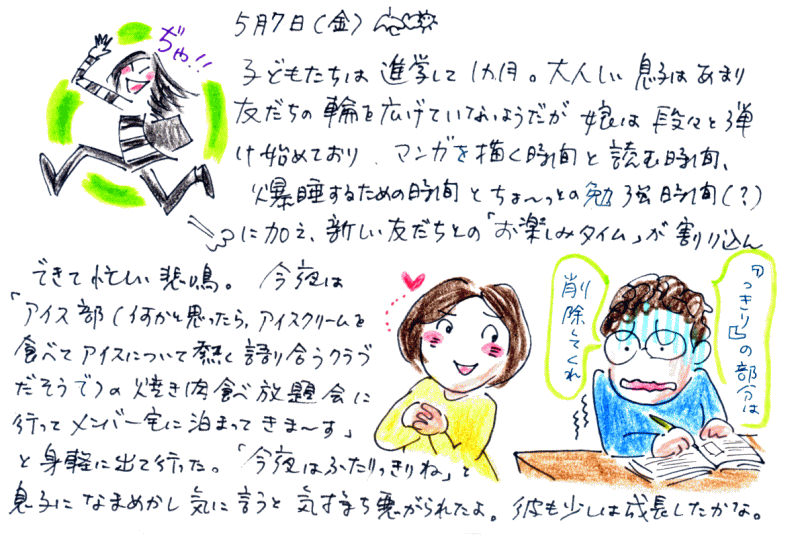 5月7日(金)
ぢゃ!!
子どもたちは進学して1カ月。大人しい息子はあまり
友だちの輪を広げていないようだが 娘は段々と弾
け始めており、マンガを描く時間と読む時間、
爆睡するための時間とちょ〜っとの勉強時間(?)
に加え、新しい友だちとの「お楽しみタイム」が割り込ん
できて忙しい悲鳴。 今夜は
「アイス部(何かと思ったら、アイスクリームを
食べてアイスについて熱く語り合うクラブ
だそうで)の焼き肉食べ放題会に
行ってメンバー宅に泊まってきま〜す」
と身軽に出て行った。「今夜はふたりっきりね」と
息子になまめかし気に言うと気持ち悪がられたよ。彼も少しは成長したかな。
『っきり』の部分は
削除してくれ